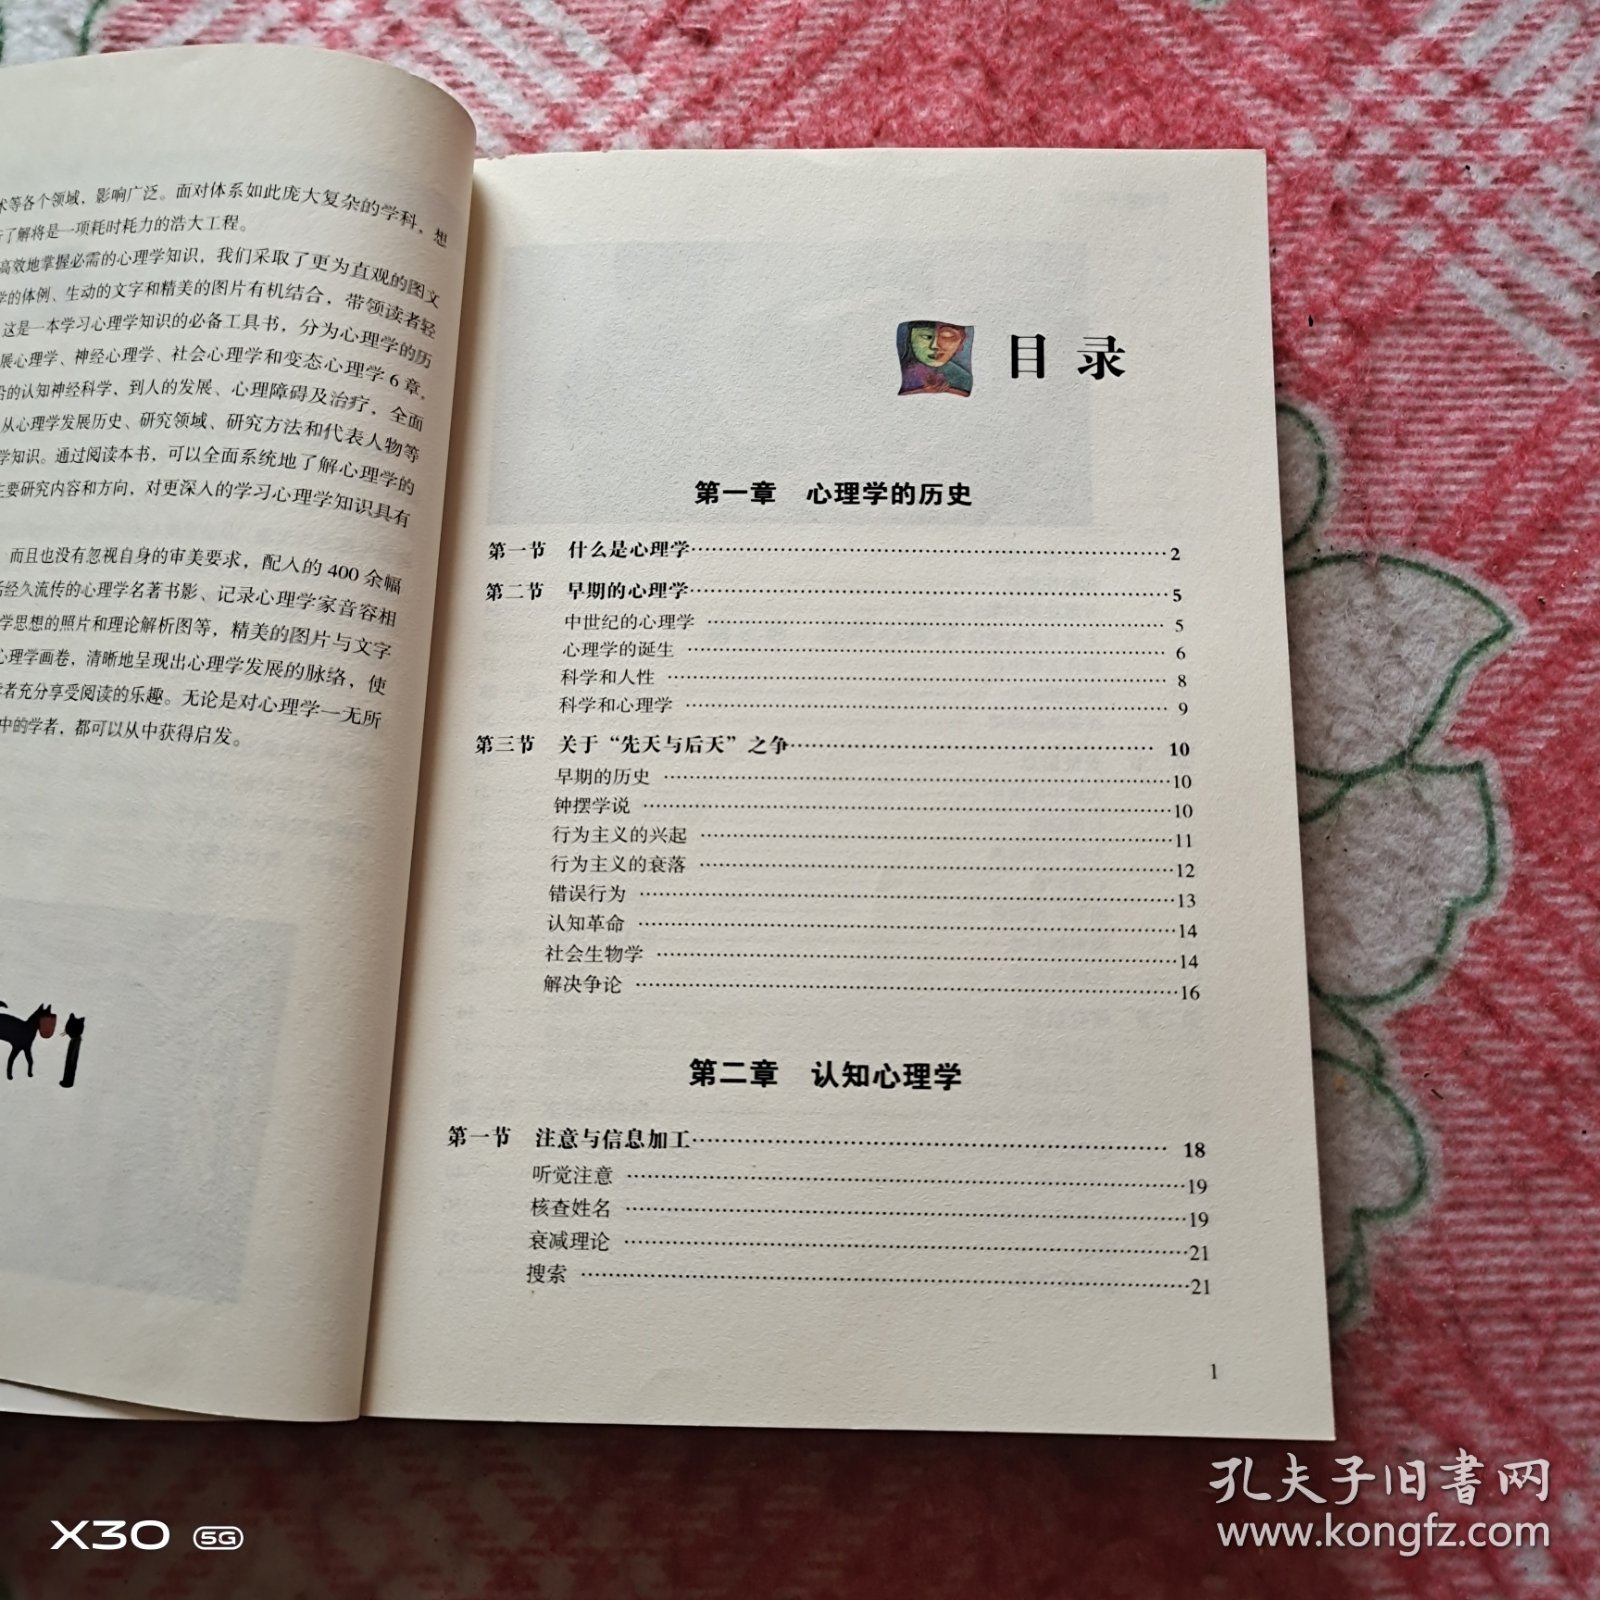 术等各个领域，影响广泛。面对体系如此庞大复杂的学科，想
了解将是一项耗时耗力的浩大工程。
高效地掌握必需的心理学知识，我们采取了更为直观的图文
学的体例、生动的文字和精美的图片有机结合，带领读者轻
这是一本学习心理学知识的必备工具书，分为心理学的历
展心理学、神经心理学、社会心理学和变态心理学6章，
沿的认知神经科学，到人的发展、心理障碍及治疗，全面
从心理学发展历史、研究领域、研究方法和代表人物等
学知识。通过阅读本书，可以全面系统地了解心理学的
主要研究内容和方向，对更深入的学习心理学知识具有
而且也没有忽视自身的审美要求，配入的400余幅
括经久流传的心理学名著书影、记录心理学家音容相
学思想的照片和理论解析图等，精美的图片与文字
心理学画卷，清晰地呈现出心理学发展的脉络，使
者充分享受阅读的乐趣。无论是对心理学一无所
中的学者，都可以从中获得启发。
目录
第一章 心理学的历史
第一节 什么是心理学 2
第二节 早期的心理学 5
中世纪的心理学 5
心理学的诞生 6
科学和人性 8
科学和心理学 9
第三节 关于“先天与后天”之争 10
早期的历史 10
钟摆学说 10
行为主义的兴起 11
行为主义的衰落 12
错误行为 13
认知革命 14
社会生物学 14
解决争论 16
第二章 认知心理学
第一节 注意与信息加工 18
听觉注意 19
核查姓名 19
衰减理论 21
搜索 21
1
X30 5G
孔夫子旧书网
www.kongfz.com